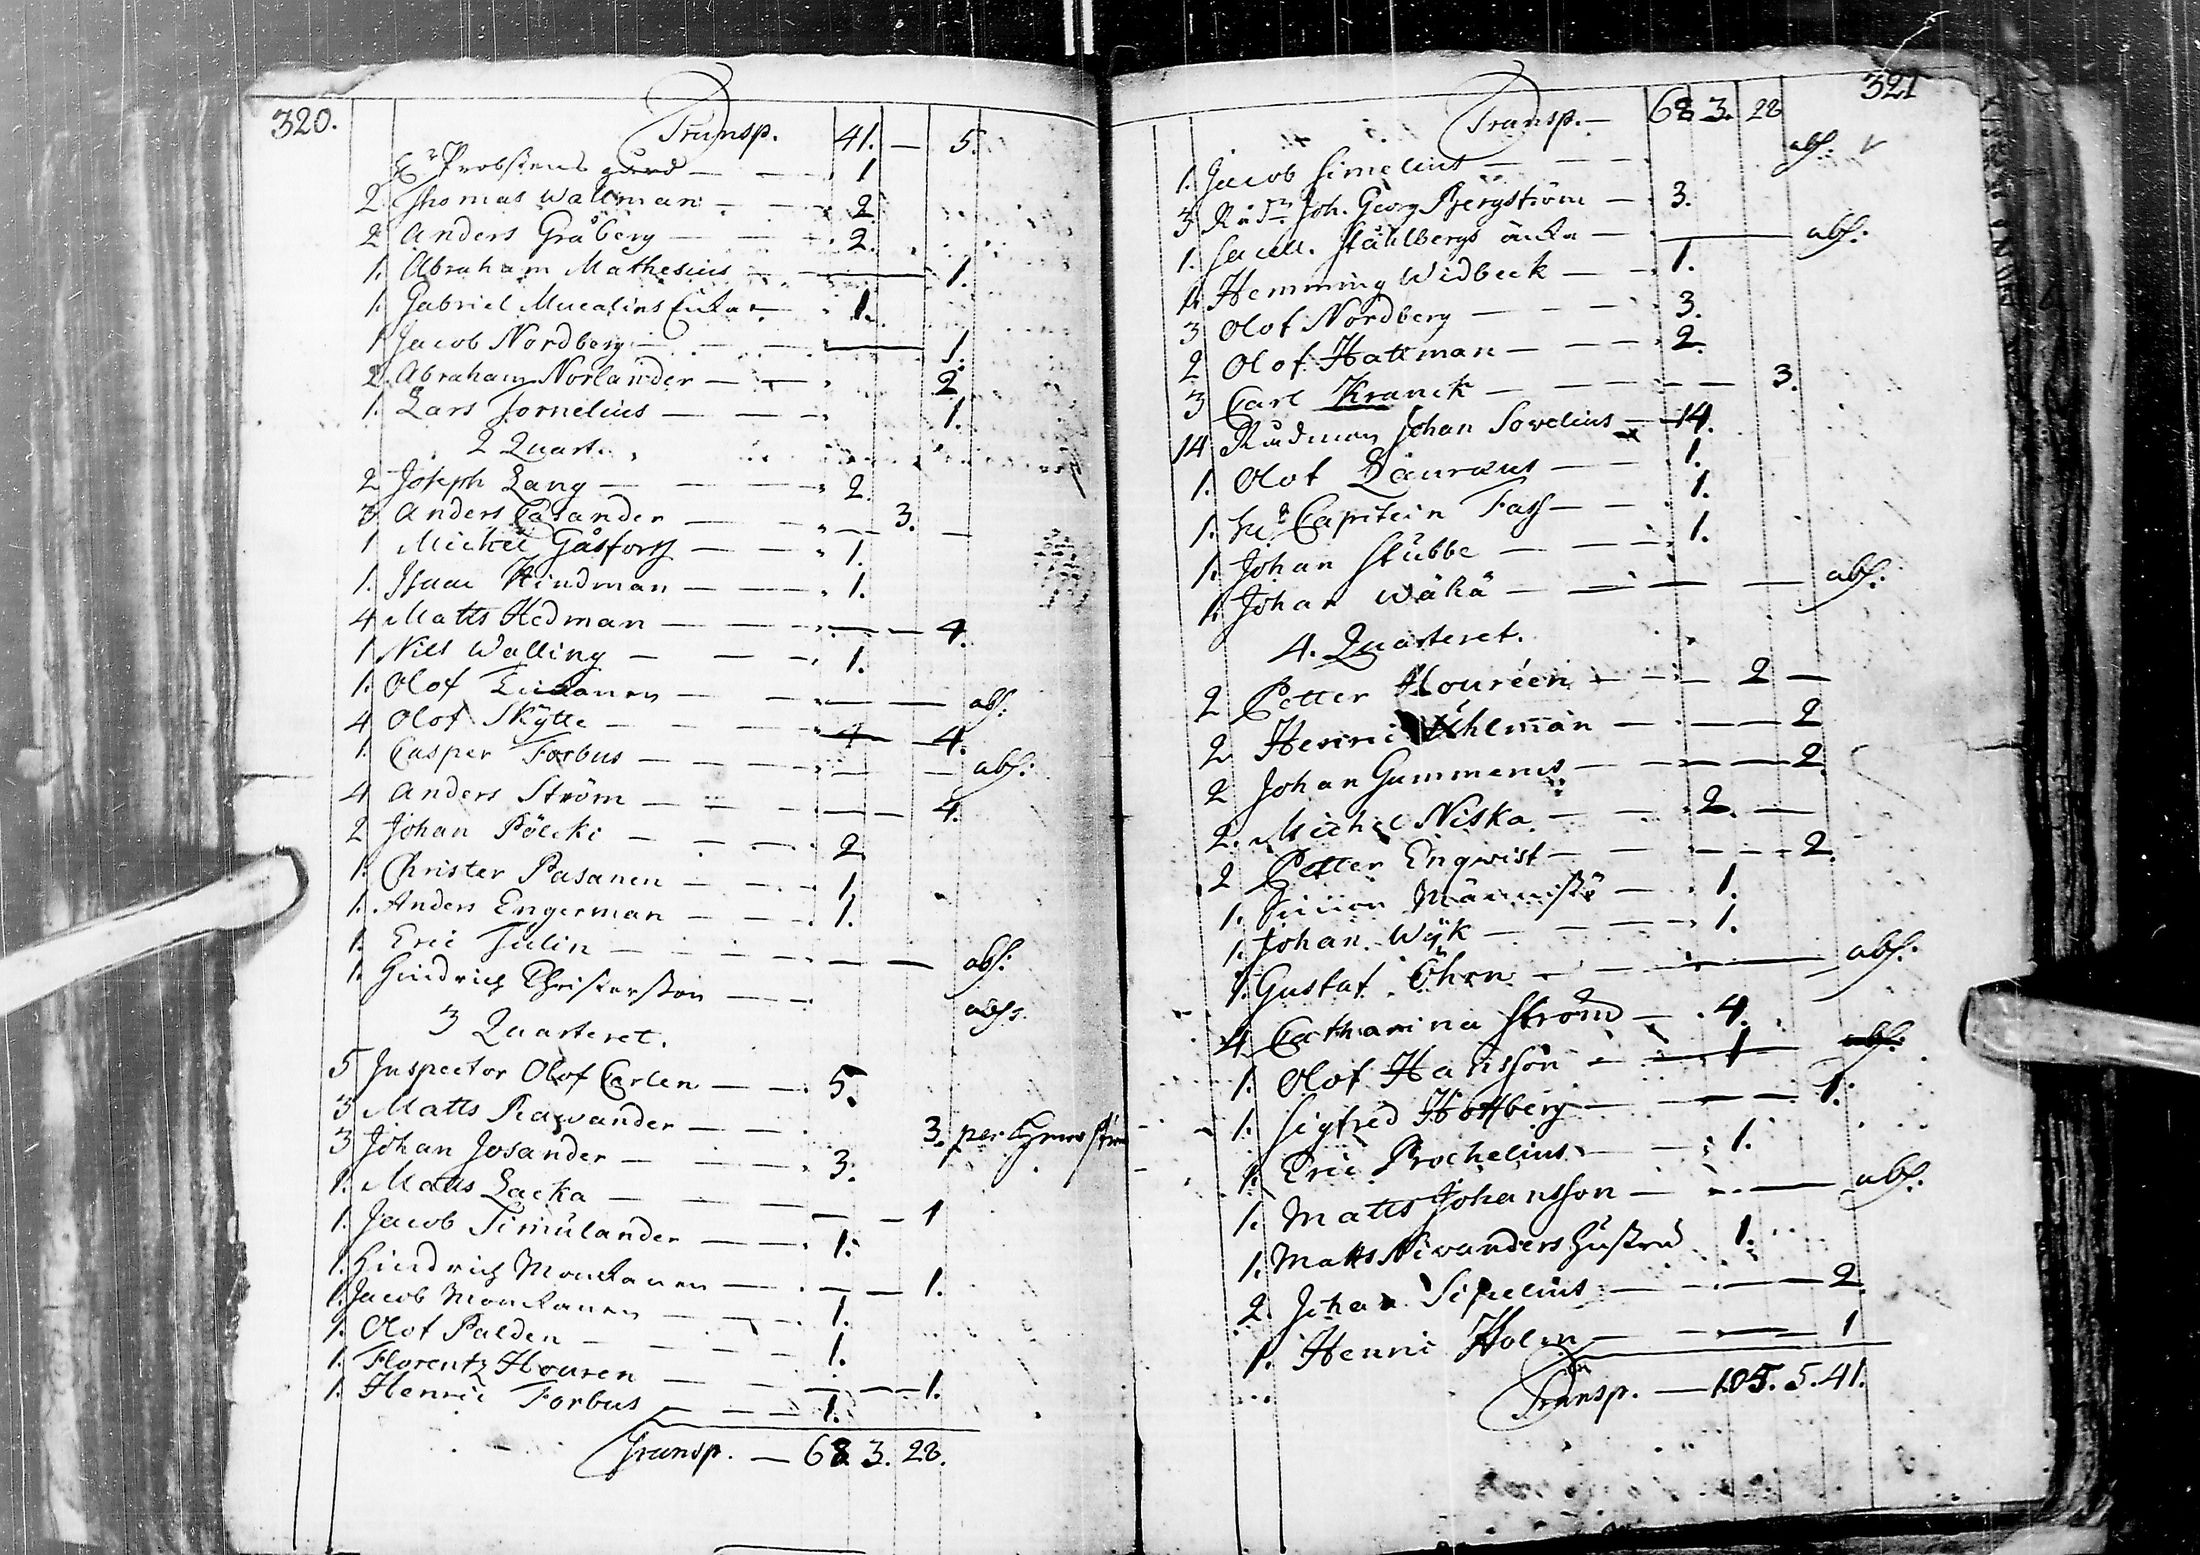 320.
Transp. 41. — 5.
Hr Probstens gård — — 1
2. Thomas Wallman — — 2
2 Anders Gråberg — — 2.
1. Abraham Mathesius — — 1.
1. Gabriel Mucalius Enka — 1.
1 Jacob Nordberg — — 1.
2. Abraham Norlander — — 2
1. Lars Tornelius — — 1.
2 Quart.
2 Joseph Lang — — 2.
3 Anders Casander — — 3. —
1 Michel Gåsfors — — 1.
1. Isaac Hindman — — 1.
4 Matts Hedman — — 4.
1 Nils Walling — — 1.
1. Olof — — abs:
4 Olof Skytte — — 4 — 4.
1. Casper Forbus — — abs:
4 Anders Ström — — 4.
2 Johan Pölcki — — 2
1. Christer Pasanen — — 1.
1. Anders Engerman — — 1.
1. Eric Julin — — abs:
1. Hindrich Christersson — — abs.
3 Quarteret.
5 Inspector Olof Carlen — — 5.
3 Matts Rawander — — 3. per
3 Johan Josander — — 3.
1. Matts Lacka — — 1
1. Jacob Timulander — — 1.
1. Hindrich Monckanen — — 1.
1. Jacob Monckanen — — 1.
1. Olof Palden — — 1.
1. Florentz Houren — — 1.
1. Henric Forbus — — 1.
Transp. — 68. 3. 28.
321
Transp. — 68 3. 28
1. Jacob Simelius — — abs:
3 Rådm Joh. Georg Bergström — 3.
1. Jacob. Ståhlbergs änka — abs:
1. Hemming Widbeck — — 1.
3 Olof Nordberg — — 3.
2 Olof Hallman — — 2.
3 Carl Kranck — — 3.
14 Rådman Johan Sovelius — 14.
1. Olof Lauræus — — 1.
1. Hr Capitein Fass — — 1.
1. Johan Stubbe — — 1.
1. Johan Wähä — — abs:
4. Quarteret.
2 Petter Houréen — — 2 —
2 Henric Uhlman — — 2
2 Johan Gummerus — — 2.
2. Michel Niska — — 2. —
2 Petter Enqwist — — 2.
1. Simon Männistö — — 1.
1. Johan Wÿk — — 1.
1. Gustaf Öhrn — — abs:
4 Catharina Ström — 4.
1. Olof Hansson — — 1 abs:
1. Sigfred Hoffberg — — 1.
1. Eric Prochelius — — 1.
1. Matts Johansson — — abs:
1. Matts Niwanders Hustru 1.
2. Johan Sipelius — — 2
1. Henric Holm — — 1
Transp. — 105. 5. 41.